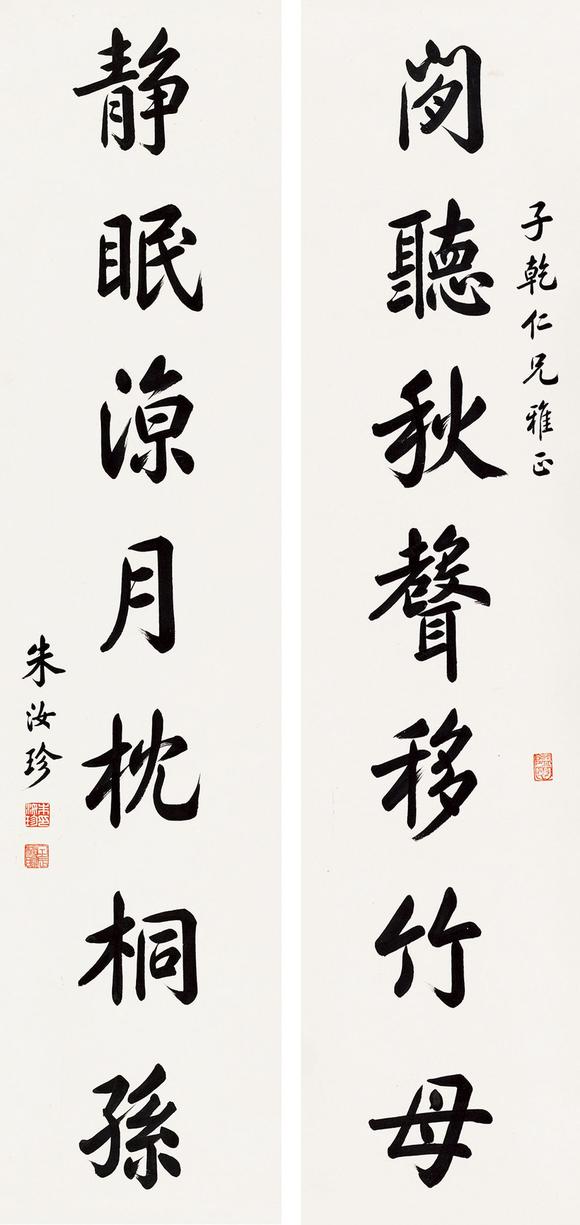 子乾仁兄雅正
閒聽秋聲移竹母
静眠涼月枕桐孫
朱汝珍